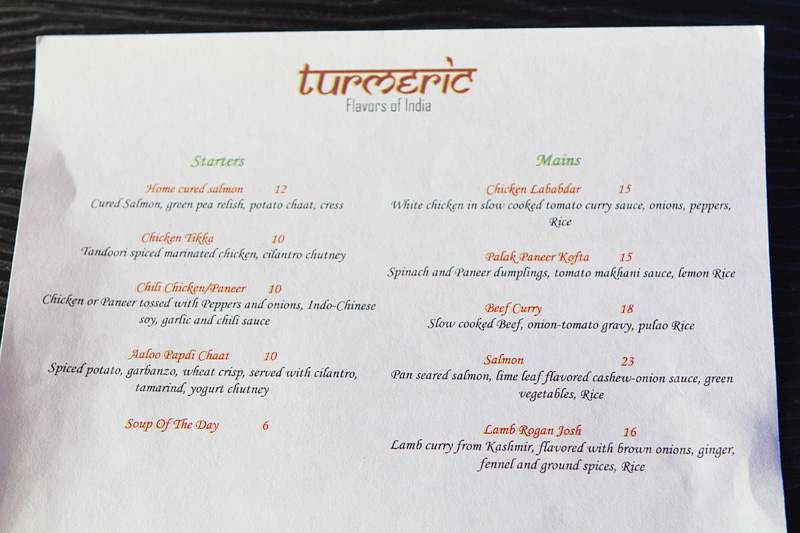 turmeric
Flavors of India
Starters
Home cured salmon 12
Cured Salmon, green pea relish, potato chaat, cress
Chicken Tikka 10
Tandoori spiced marinated chicken, cilantro chutney
Chili Chicken/Paneer 10
Chicken or Paneer tossed with Peppers and onions, Indo-Chinese
soy, garlic and chili sauce
Aaloo Papdi Chaat 10
Spiced potato, garbanzo, wheat crisp, served with cilantro,
tamarind, yogurt chutney
Soup Of The Day 6
Mains
Chicken Lababdar 15
White chicken in slow cooked tomato curry sauce, onions, peppers,
Rice
Palak Paneer Kofta 15
Spinach and Paneer dumplings, tomato makhani sauce, lemon Rice
Beef Curry 18
Slow cooked Beef, onion-tomato gravy, pulao Rice
Salmon 23
Pan seared salmon, lime leaf flavored cashew-onion sauce, green
vegetables, Rice
Lamb Rogan Josh 16
Lamb curry from Kashmir, flavored with brown onions, ginger,
fennel and ground spices, Rice